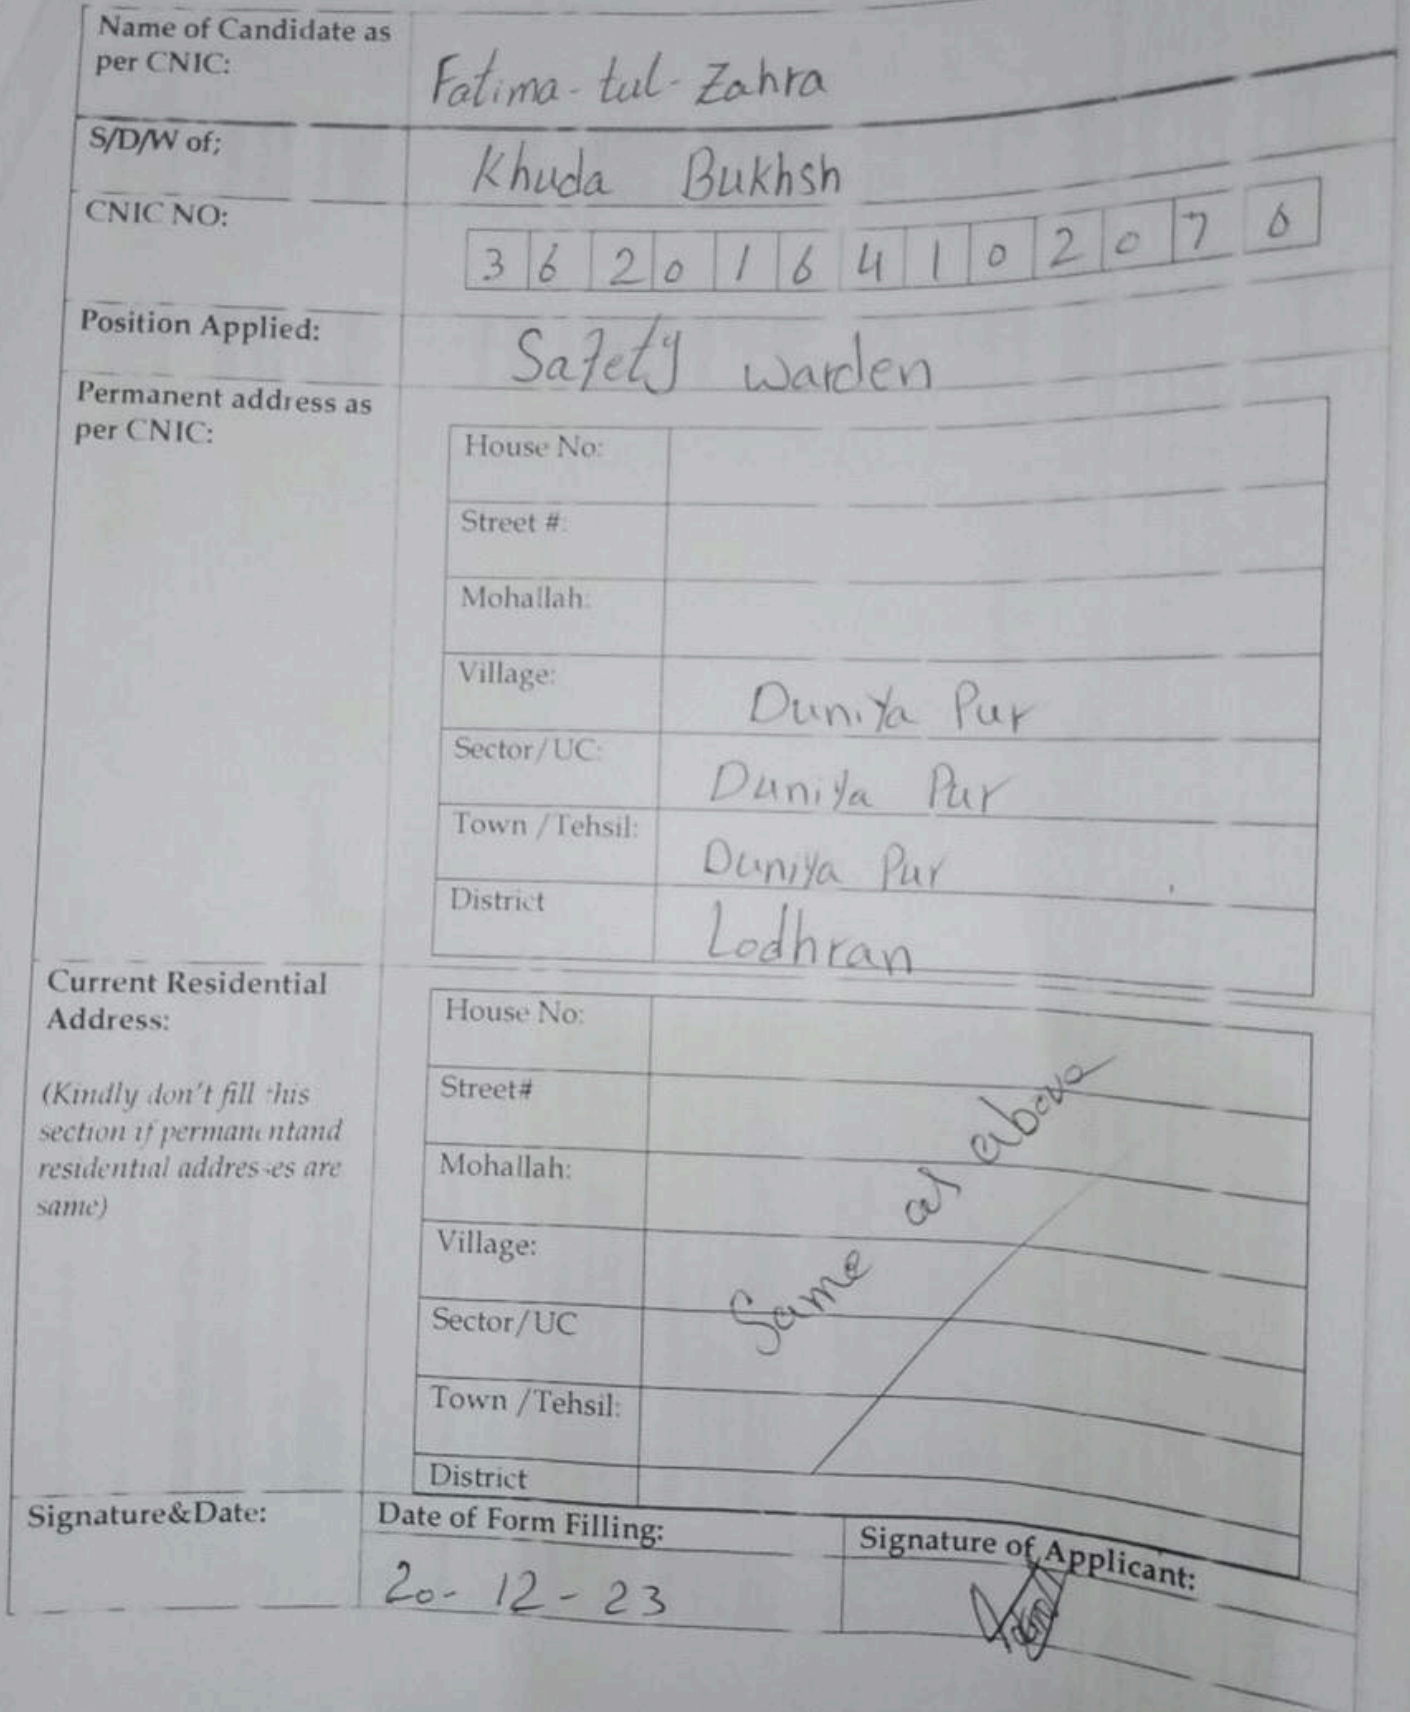 Name of Candidate as
per CNIC:
Fatima-tul-Zahra
S/D/W of;
Khuda Bukhsh
CNIC NO:
3 6 2 0 1 6 4 1 0 2 0 7 6
Position Applied:
Safety warden
Permanent address as
per CNIC:
House No:
Street #:
Mohallah:
Village:
Duniya Pur
Sector/UC:
Duniya Pur
Town /Tehsil:
Duniya Pur
District
Lodhran
Current Residential
Address:
(Kindly don't fill this
section if permanentand
residential addresses are
same)
House No:
Street#
Mohallah:
Village:
Sector/UC
Town /Tehsil:
District
Same as above
Signature&Date:
Date of Form Filling:
20-12-23
Signature of Applicant: